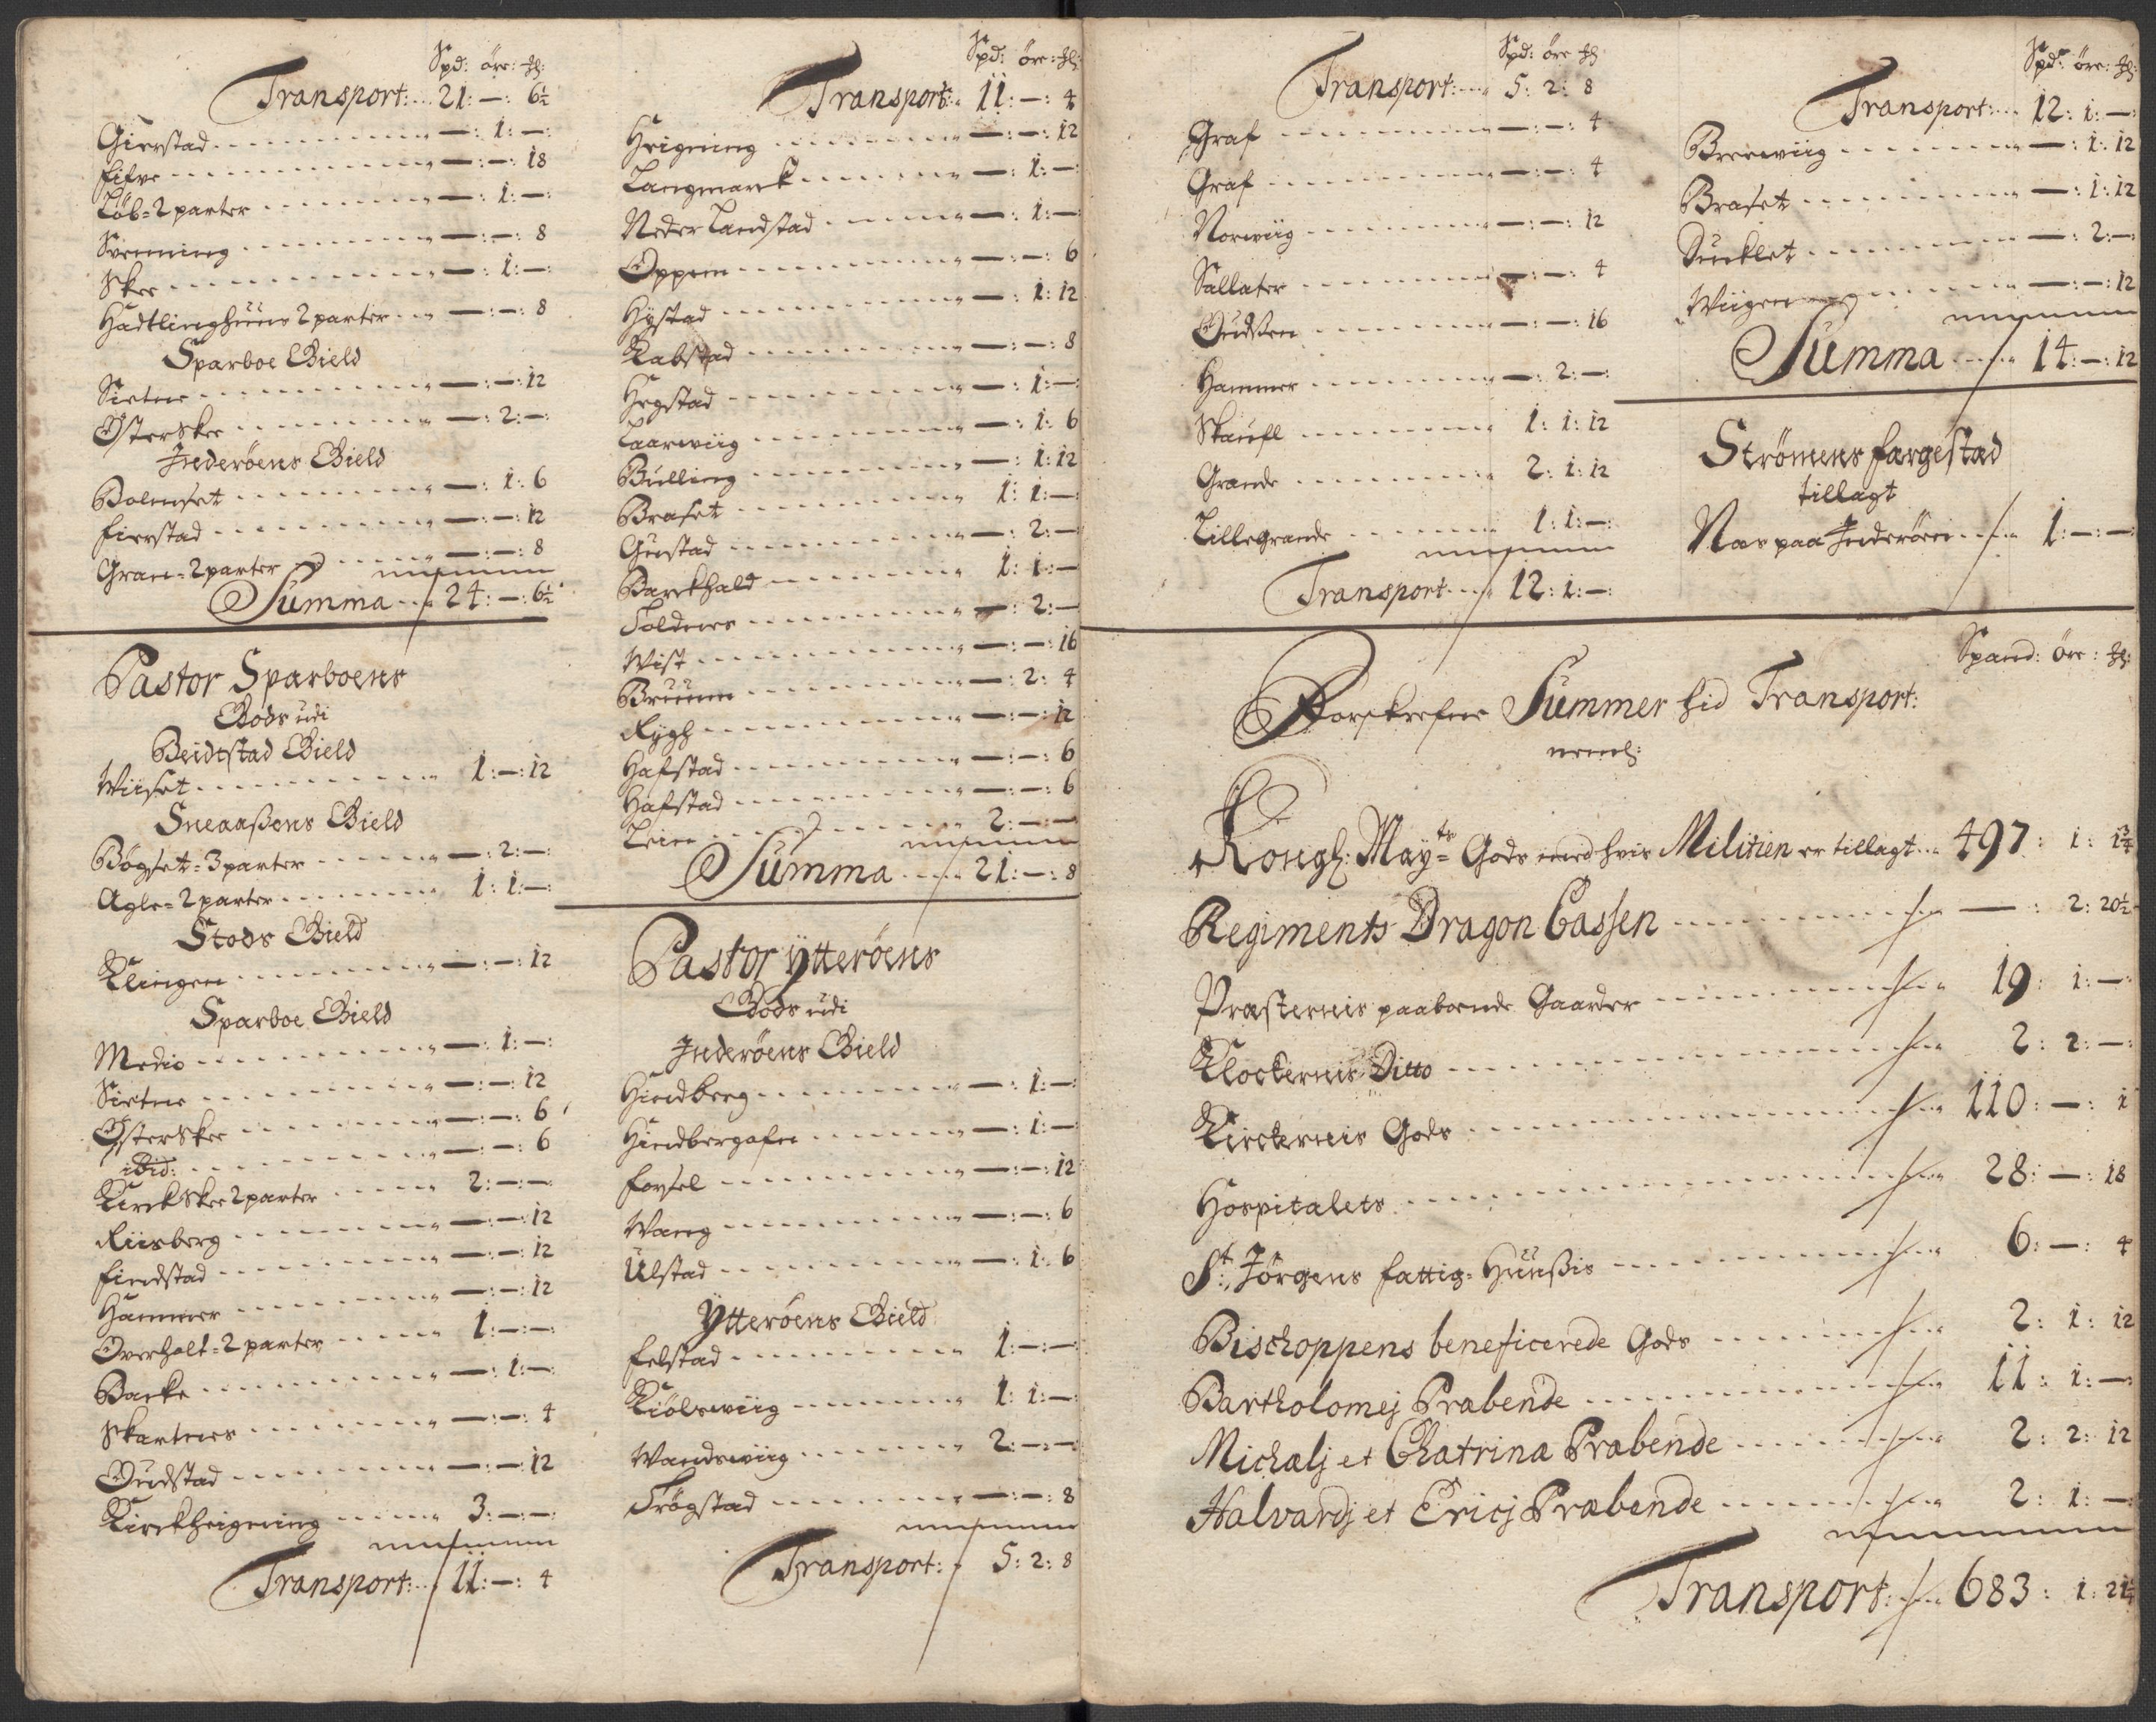 Spd: öre: ₰:
Transport: 21: —: 6½
Gierstad —: 1: —:
Fifve —: —: 18
Løb= 2 parter —: 1: —:
Svenning —: —: 8
Skee —: 1: —:
Hadtlinghuus 2 parter —: —: 8
Sparboe Gield
Sietne —: —: 12
Østerskee —: 2: —:
Inderöens Gield
Bolmset —: 1: 6
Fierstad —: —: 12
Gran= 2 parter —: —: 8
Summa 24: —: 6½
Pastor Sparboens
Gods udi
Beidtstad Gield
Wiiset 1: —: 12
Sneaaßens Gield
Bøgset= 3 parter —: 2: —:
Agle= 2 parter 1: 1: —:
Stods Gield
Klingen —: —: 12
Sparboe Gield
Medie —: 1: —:
Sietne —: —: 12
Østerskee —: —: 6
ibid: —: —: 6
Kirckskee 2 parter 2: —: —
Riisberg —: —: 12
Findstad —: —: 12
Hammer —: —: 12
Overholt= 2 parter 1: —: —:
Backe —: 1: —:
Skartnes —: —: 4
Oudstad —: —: 12
Kirckheigning 3: —: —:
Transport: 11: —: 4
Spd: öre: ₰:
Transport: 11: —: 4
Heigning —: —: 12
Langmarck —: 1: —:
Neder Landstad —: 1: —
Oppem —: —: 6
Hÿstad —: 1: 12
Kabstad —: —: 8
Hegstad —: 1: —:
Laarwiig —: 1: 6
Bulling —: 1: 12
Braset 1: 1: —:
Gustad —: 2: —
Barckhald 1: 1: —
Soldnes —: 2: —
Wist —: —: 16
Bruum —: 2: 4
Rygh —: —: 12
Hafstad —: —: 6
Hafstad —: —: 6
Lein 2: —: —
Summa 21: —: 8
Pastor Ytterøens
Gods udi
Inderöens Gield
Hindberg —: 1: —:
Hindbergafn —: 1: —
Forsel —: —: 12
Wang —: —: 6
Ulstad —: 1: 6
Ytterøens Gield
Felstad 1: —: —:
Kiölswiig 1: 1: —:
Wandswiig 2: —: —
Frögstad —: —: 8
Transport: 5: 2: 8
Spd: öre ₰
Transport: 5: 2: 8
Graf —: —: 4
Graf —: —: 4
Norwiig —: —: 12
Sallater —: —: 4
Oudsten —: —: 16
Hammer —: 2: —:
Skaufl 1: 1: 12
Grande 2: 1: 12
Lillegrande 1: 1: —:
Transport 12: 1: —:
Spd: öre: ₰:
Transport: 12: 1: —:
Brerwiig —: 1: 12
Braset —: 1: 12
Duuklet —: 2: —:
Wiigen —: —: 12
Summa 14: —: 12
Strömens fargestad
tillagt
Næs paa Inderöen 1: —: —:
Spand: öre: ₰:
Forskrefne Summer hid Transport:
neml:
Kongl: Mayts Gods med hvis Militien er tillagt 497: 1: 1¾
Regiments Dragon Cassen —: 2: 20½
Præsternis paaboende Gaarder 19: 1: —:
Klockernis Ditto 2: 2: —:
Kirckernis Gods 110: —: 1
Hospitalets 28: —: 18
St: Jörgens fattig= Huußis 6: —: 4
Bischoppens beneficerede Gods 2: 1: 12
Bartholomej Præbende 11: 1: —:
Michælj et Chatrina Præbende 2: 2: 12
Halvardj et Ericj Præbende 2: 1: —
Transport: 683: 1: 21¼